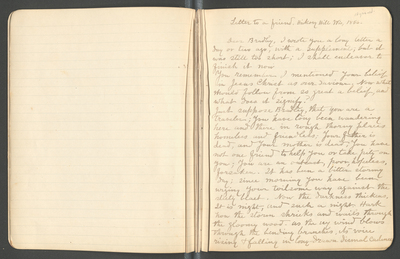 Letter to a friend
Dear Bradley, I wrote you a long letter a
day or two ago, with a supplement, but it
was still too short; I shall endeavor to
finish it now.
You remember I mentioned your belief
in Jesus Christ as our Saviour. Now what
should follow from so great a belief, and
what does it signify.
Just suppose Bradley, that you are a
traveler; you have long been wandering
here and there in rough thorny places
homeless and friendless; your father is
dead, and your mother is dead; you have
not one friend to help you or take pity on
you; you are an outcast, poor, hopeless,
forsaken. It has been a bitter stormy
day; since morning you have been
urging your toilsome way against the
blast. Now the darkness thickens,
it is night, and such a night! Hark
how the storm shrieks and wails through
the gloomy wood, as the icy wind blows
through the bending branches, its voice
rising & falling in long drawn dismal